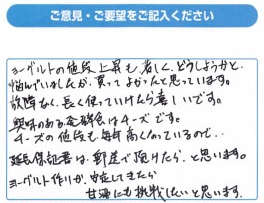 ご意見・ご要望をご記入ください
ヨーグルトの値段上昇も著しく、どうしようかと
悩んでいましたが、買ってよかったと思っています。
故障なく、長く使っていけたら嬉しいです。
興味のある発酵食はチーズです。
チーズの値段も毎年高くなっているので‥
延長保証書は、郵送で頂けたら、と思います。
ヨーグルト作りが安定してきたら
甘酒にも挑戦したいと思います。